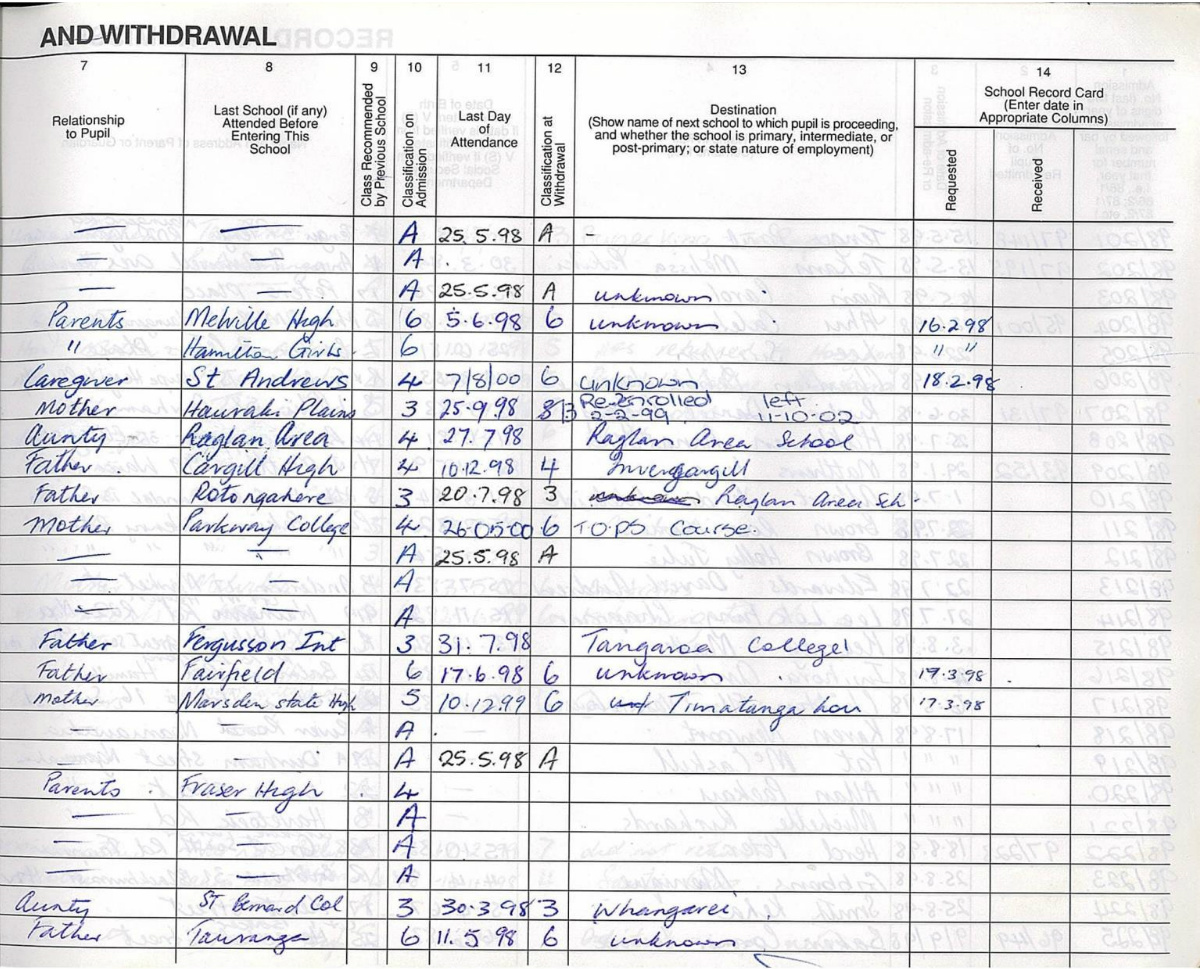 AND WITHDRAWAL
7 8 9 10 11 12 13 14
Relationship to Pupil
Last School (if any) Attended Before Entering This School
Class Recommended by Previous School
Classification on Admission
Last Day of Attendance
Classification at Withdrawal
Destination
(Show name of next school to which pupil is proceeding, and whether the school is primary, intermediate, or post-primary; or state nature of employment)
School Record Card
(Enter date in Appropriate Columns)
Requested
Received
— — A 25.5.98 A -
— — A .
— — A 25.5.98 A unknown
Parents Melville High 6 5.6.98 6 unknown 16.2.98
" Hamilton Girls. 6 " "
Caregiver St Andrews 4 7/8/00 6 unknown 18.2.98
Mother Hauraki Plains 3 25.9.98 Re-Enrolled 2-2-99 left 11-10-02
Aunty Raglan Area 4 27.7.98 Raglan Area School
Father Cargill High 4 10.12.98 4 Invercargill
Father Rotongahere 3 20.7.98 3 unknown Raglan Area Sch.
Mother Parkway College 4 26.05.00 6 TOPS Course.
— — A 25.5.98 A
— — A
— — A
Father Fergusson Int 3 31.7.98 Tangaroa College
Father Fairfield 6 17.6.98 6 unknown 17.3.98
Mother Marsden State High 5 10.12.99 6 Timatanga hou 17.3.98
— — A .
— - A 25.5.98 A
Parents Fraser High 4
— — A
— — A
— — A
Aunty St Bernard Col 3 30.3.98 3 Whangarei
Father Tauranga 6 11.5.98 6 unknown